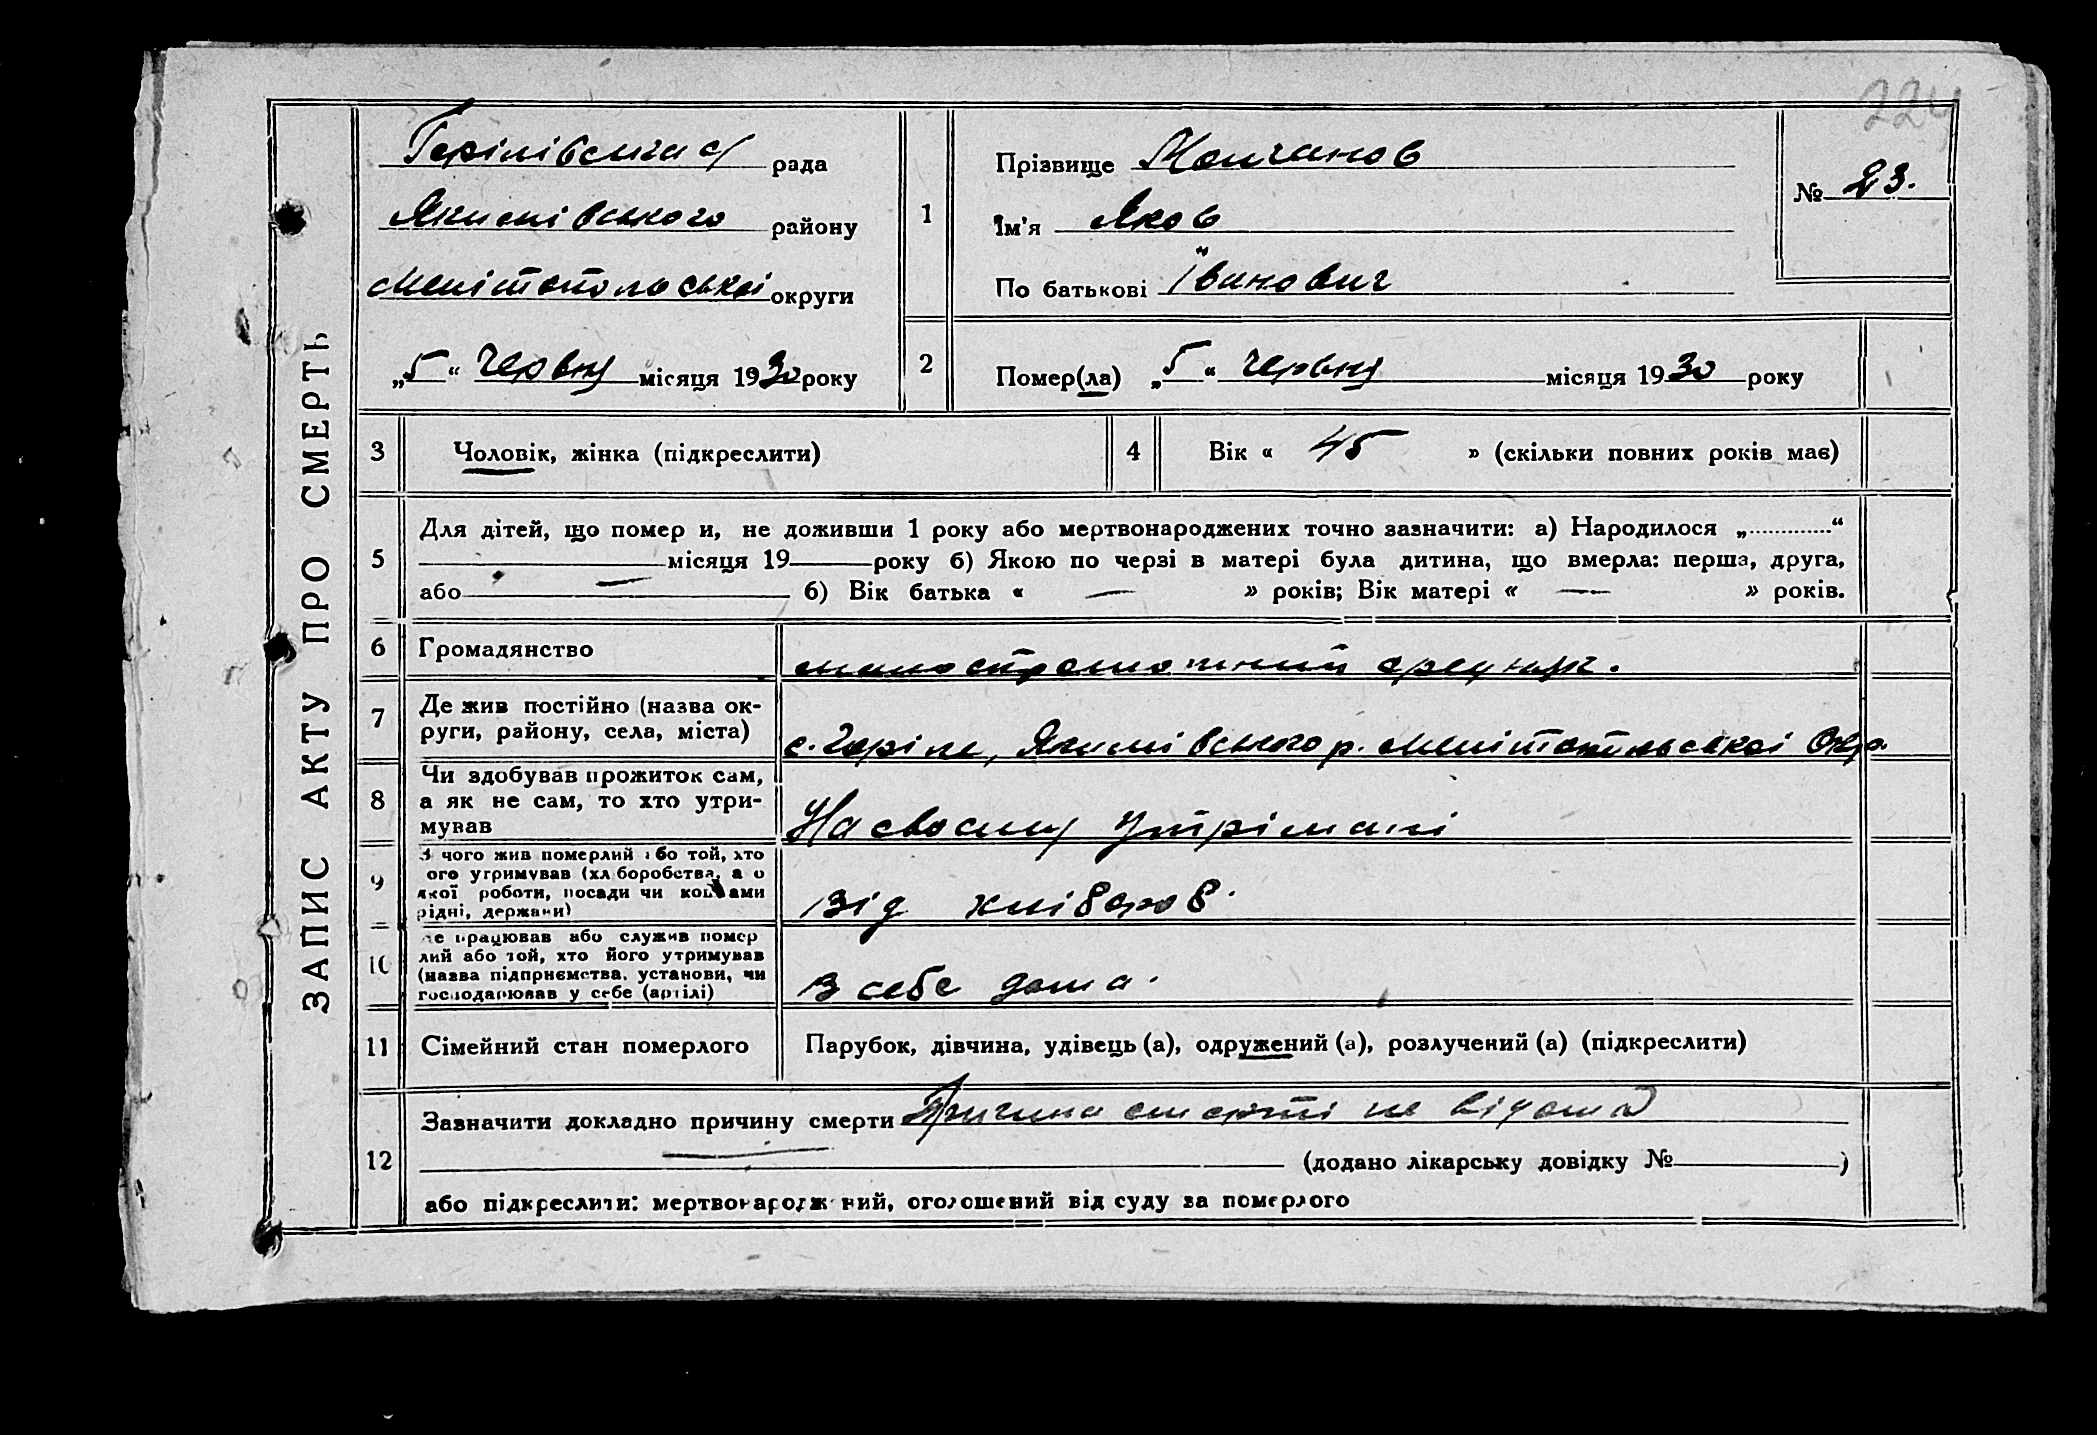 224
ЗАПИС АКТУ ПРО СМЕРТЬ
Горілівська с/ рада
Якимівського району
Мелітопольської округи
„5“ червня місяця 1930 року
1
Прізвище Молчанов
Ім'я Яков
По батькові Іванович
№ 23.
2
Помер(ла) „5“ червня місяця 1930 року
3 Чоловік, жінка (підкреслити)
4 Вік « 45 » (скільки повних років має)
5 Для дітей, що помер и, не доживши 1 року або мертвонароджених точно зазначити: а) Народилося „ “
місяця 19 року б) Якою по черзі в матері була дитина, що вмерла: перша, друга,
або — б) Вік батька « — » років; Вік матері « — » років.
6 Громадянство
7 Де жив постійно (назва ок-
руги, району, села, міста)
с. Горіле, Якимівського р. Мелітопольської Окр.
8 Чи здобував прожиток сам,
а як не сам, то хто утри-
мував
На своєму утрімані
9 З чого жив померлий або той, хто
ого утримував (хлiборобства, а о
якої роботи, посади чи коштами
рідні, держави)
Від хліборов.
10 Де працював або служив помер
лий або той, хто його утримував
(назва підприємства, установи, чи
господарював у себе (артілі)
В себе дома.
11 Сімейний стан померлого
Парубок, дівчина, удівець (а), одружений (а), розлучений (а) (підкреслити)
12 Зазначити докладно причину смерти Причина смерті не відома
— (додано лікарську довідку № )
або підкреслити: мертвонароджений, оголошений від суду за померлого